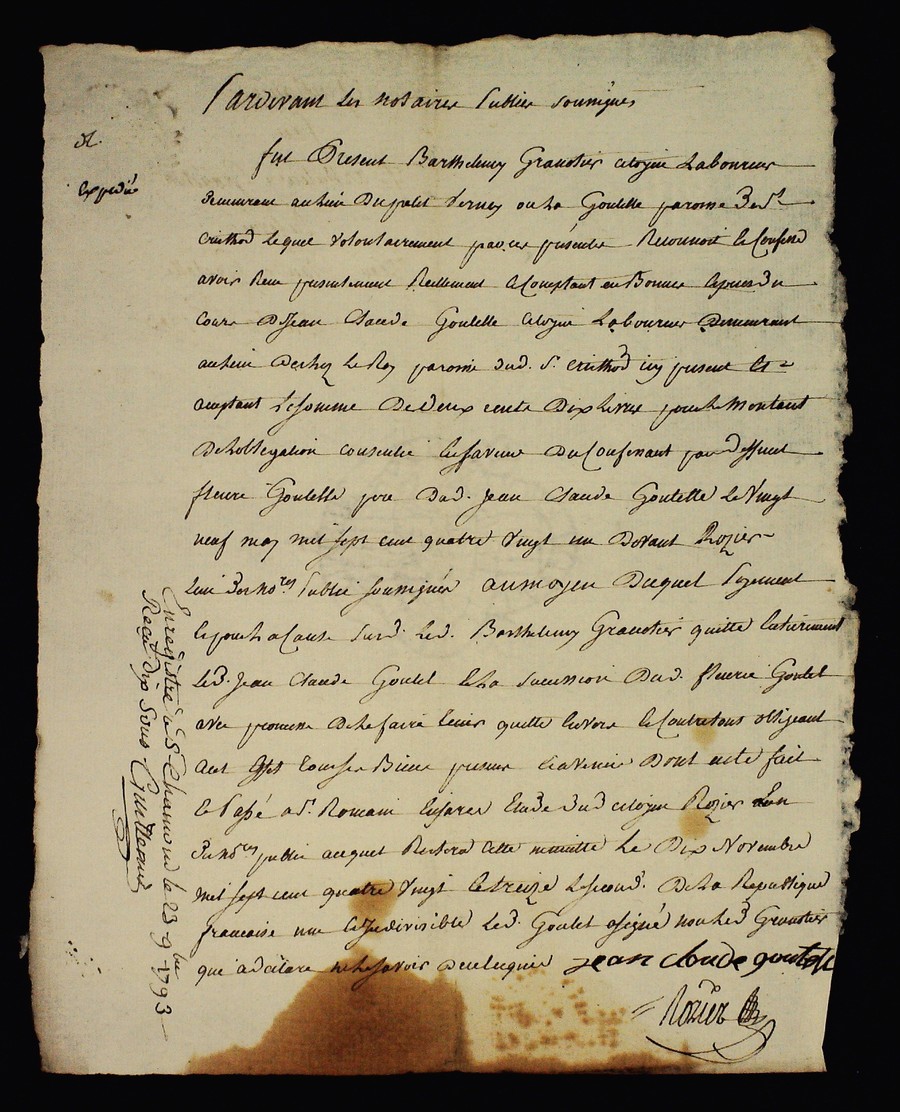 Pardevant les notaires Publics soussignés
expedié
fut Present Barthelemy Granotier citoyen Laboureur
demeurant au lieu Du petit Verney ou La Goutelle paroisse de St
cristhod Lequel volontairement par ces présentes Reconnoit & Confesse
avoir Receu presentement Reellement & Comptant en Bonnes Especes du
Cours De Jean Claude Goutelle citoyen Laboureur Demeurant
au lieu De chez Le Roy paroisse dud. St cristhod icy present &
acceptant La somme De Deux cents Dix Livres pour Le Montant
De Lobligation consentie en faveur Du Confessant par deffunt
fleurie Goutelle pere Dud. Jean Claude Goutelle Le Vingt
neuf may mil sept cent quatre vingt un Devant Rozier
L'un des nores Public soussignés aumoyen Duquel Payement
& pour La Cause Susd. Led. Barthelemy Granotier quitte Entierement
Led. Jean Claude Goutel & La succession Dud. fleurie Goutel
avec promesse De Le faire tenir quitte Envers & Contre tous obligeant
aux Tous ses Biens presens & avenir Dont acte fait
& Passé a St Romain En Jarez Etude Dud citoyen Rozier L'un
Des nores public auquel Restera Cette minutte Le Dix Novembre
mil sept cent quatre vingt & treize Lesecond. De La Republique
francaise une & indivisible Led. Goutel a signé non Led Granotier
qui a declaré ne Le savoir De ce Enquis jean claude goutelle
Rozier
Enregistré à St Chamond le 23 9bre 1793
Reçu dix sous Guillemin